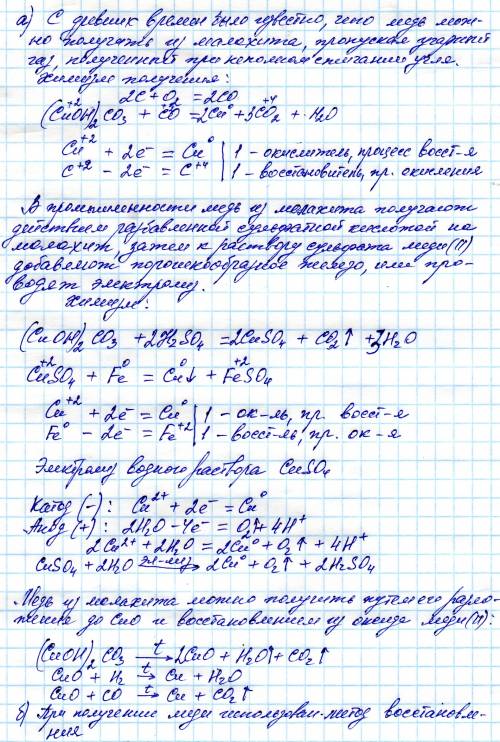 а) С древних времен было известно, что медь мож-
но получать из малахита, пропуская угарный
газ, полученный при неполном сжигании угля.
Химизм получения:
2C + O₂ = 2CO
(CuOH)₂CO₃ + CO = 2Cu⁰ + 3CO₂ + H₂O
Cu⁺² + 2e⁻ = Cu⁰ | 1 - окислитель, процесс восст-я
C⁺² - 2e⁻ = C⁺⁴ | 1 - восстановитель, пр. окисления
В промышленности медь из малахита получают
действием разбавленной сульфатной кислотой на
малахит, затем к раствору сульфата меди (II)
добавляют порошкообразное железо, или про-
водят электролиз.
Химизм:
(CuOH)₂CO₃ + 2H₂SO₄ = 2CuSO₄ + CO₂↑ + 3H₂O
Cu⁺²SO₄ + Fe⁰ = Cu⁰↓ + Fe⁺²SO₄
Cu⁺² + 2e⁻ = Cu⁰ | 1 - ок-ль, пр. восст-я
Fe⁰ - 2e⁻ = Fe⁺² | 1 - восст-ль, пр. ок-я
Электролиз водного раствора CuSO₄
Катод (-): Cu²⁺ + 2e⁻ = Cu⁰
Анод (+): 2H₂O - 4e⁻ = O₂↑ + 4H⁺
2Cu²⁺ + 2H₂O = 2Cu⁰ + O₂↑ + 4H⁺
CuSO₄ + 2H₂O эл-лиз→ 2Cu⁰ + O₂↑ + 2H₂SO₄
Медь из малахита можно получить путем его разло-
жения до CuO и восстановлением из оксида меди (II):
(CuOH)₂CO₃ t→ 2CuO + H₂O↑ + CO₂↑
CuO + H₂ t→ Cu + H₂O
CuO + CO t→ Cu + CO₂↑
б) При получении меди использован метод восстановле-
ния